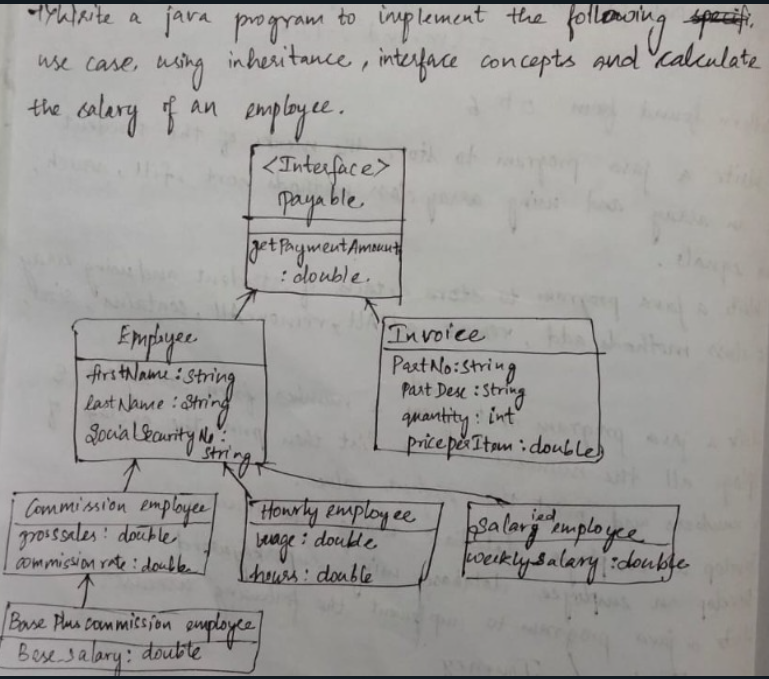 Write a java program to implement the following
use case, using inheritance, interface concepts and calculate
the salary of an employee.
<Interface>
payable
getPaymentAmount
: double.
Employee
firstName : String
lastName : String
SocialSecurityNo :
String
Invoice
PartNo : String
Part Desc : String
quantity : int
priceperItem : double
Commission employee
grosssales : double
commission rate : double
Hourly employee
wage : double
hours : double
Salaried employee
weeklysalary : double
Base Plus commission employee
Base_salary : double